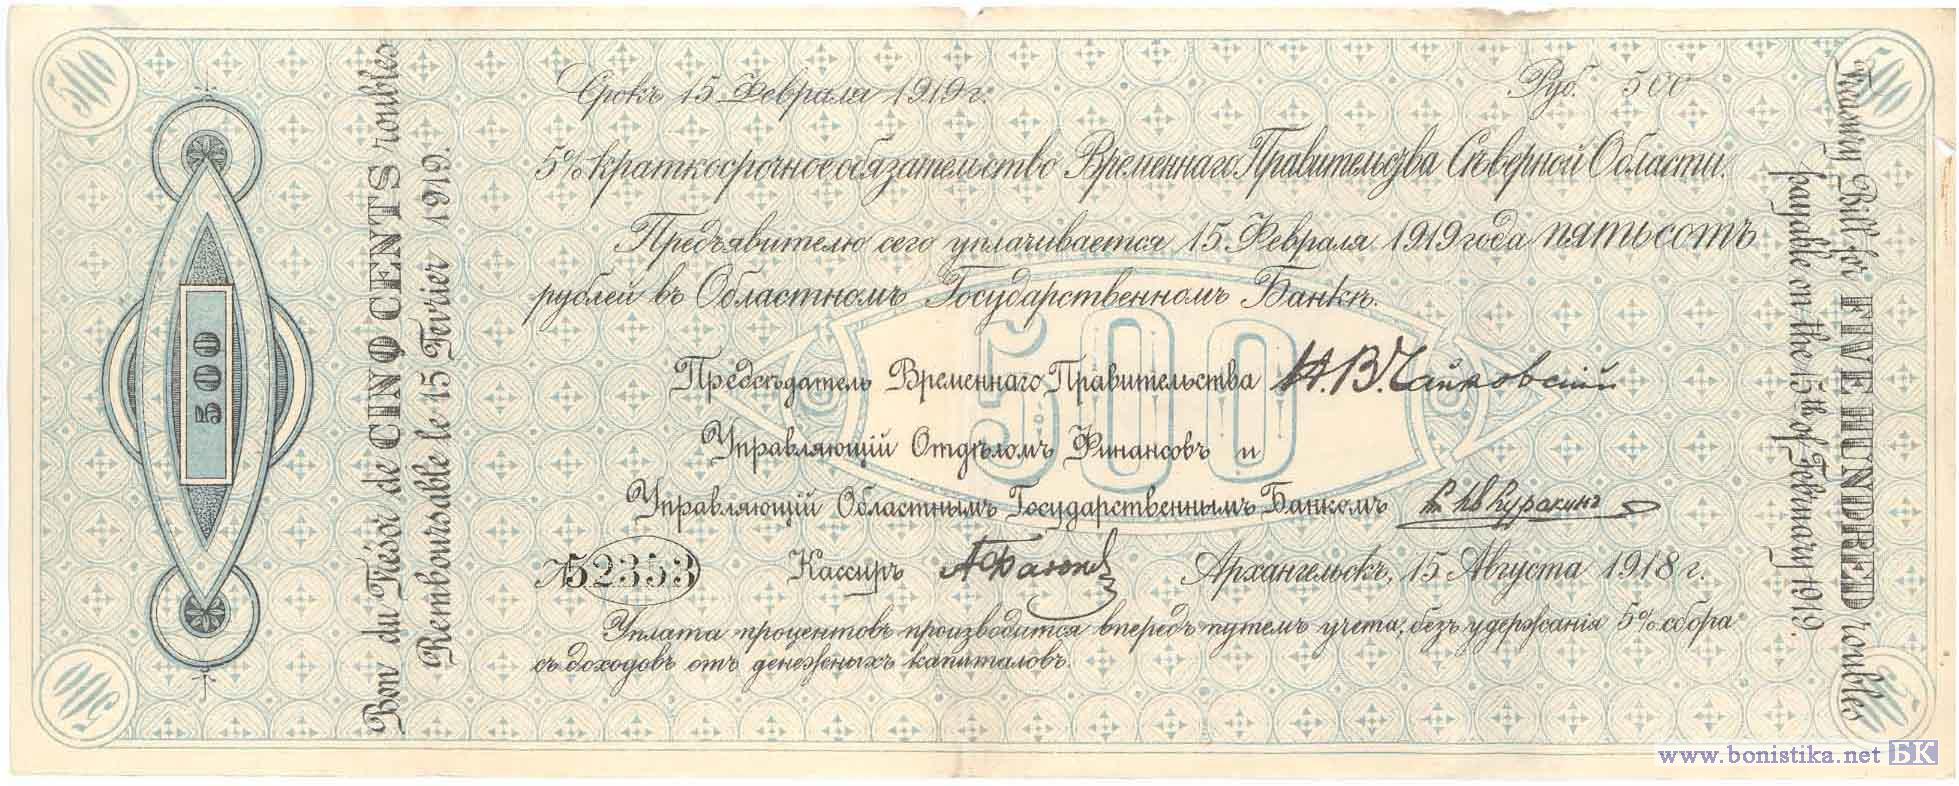 500
500
Срокъ 15 Февраля 1919 г. Руб. 500
5% краткосрочное обязательство Временнаго Правительства Сѣверной Области.
Предъявителю сего уплачивается 15 Февраля 1919 года пятьсотъ
рублей въ Областномъ Государственномъ Банкѣ.
500
Предсѣдатель Временнаго Правительства Н. В. Чайковский
Управляющій Отдѣломъ Финансовъ и
Управляющій Областнымъ Государственнымъ Банкомъ Куракинъ
№ 52353 Кассиръ Архангельскъ, 15 Августа 1918 г.
Уплата процентовъ производится впередъ путемъ учета, безъ удержанія 5% сбора
съ доходовъ отъ денежныхъ капиталовъ.
500
Bon du Trésor de CINQ CENTS roubles
Remboursable le 15 Fevrier 1919.
Treasury Bill for FIVE HUNDRED roubles
payable on the 15th of February 1919.
500
500
www.bonistika.net БК